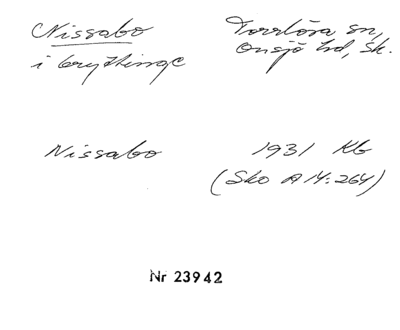 Nissabo Torrlösa sn,
i brytninge Onsjö hd, Sk.
Nissabo 1931 Kb
(Sko A14:264)
Nr 23942